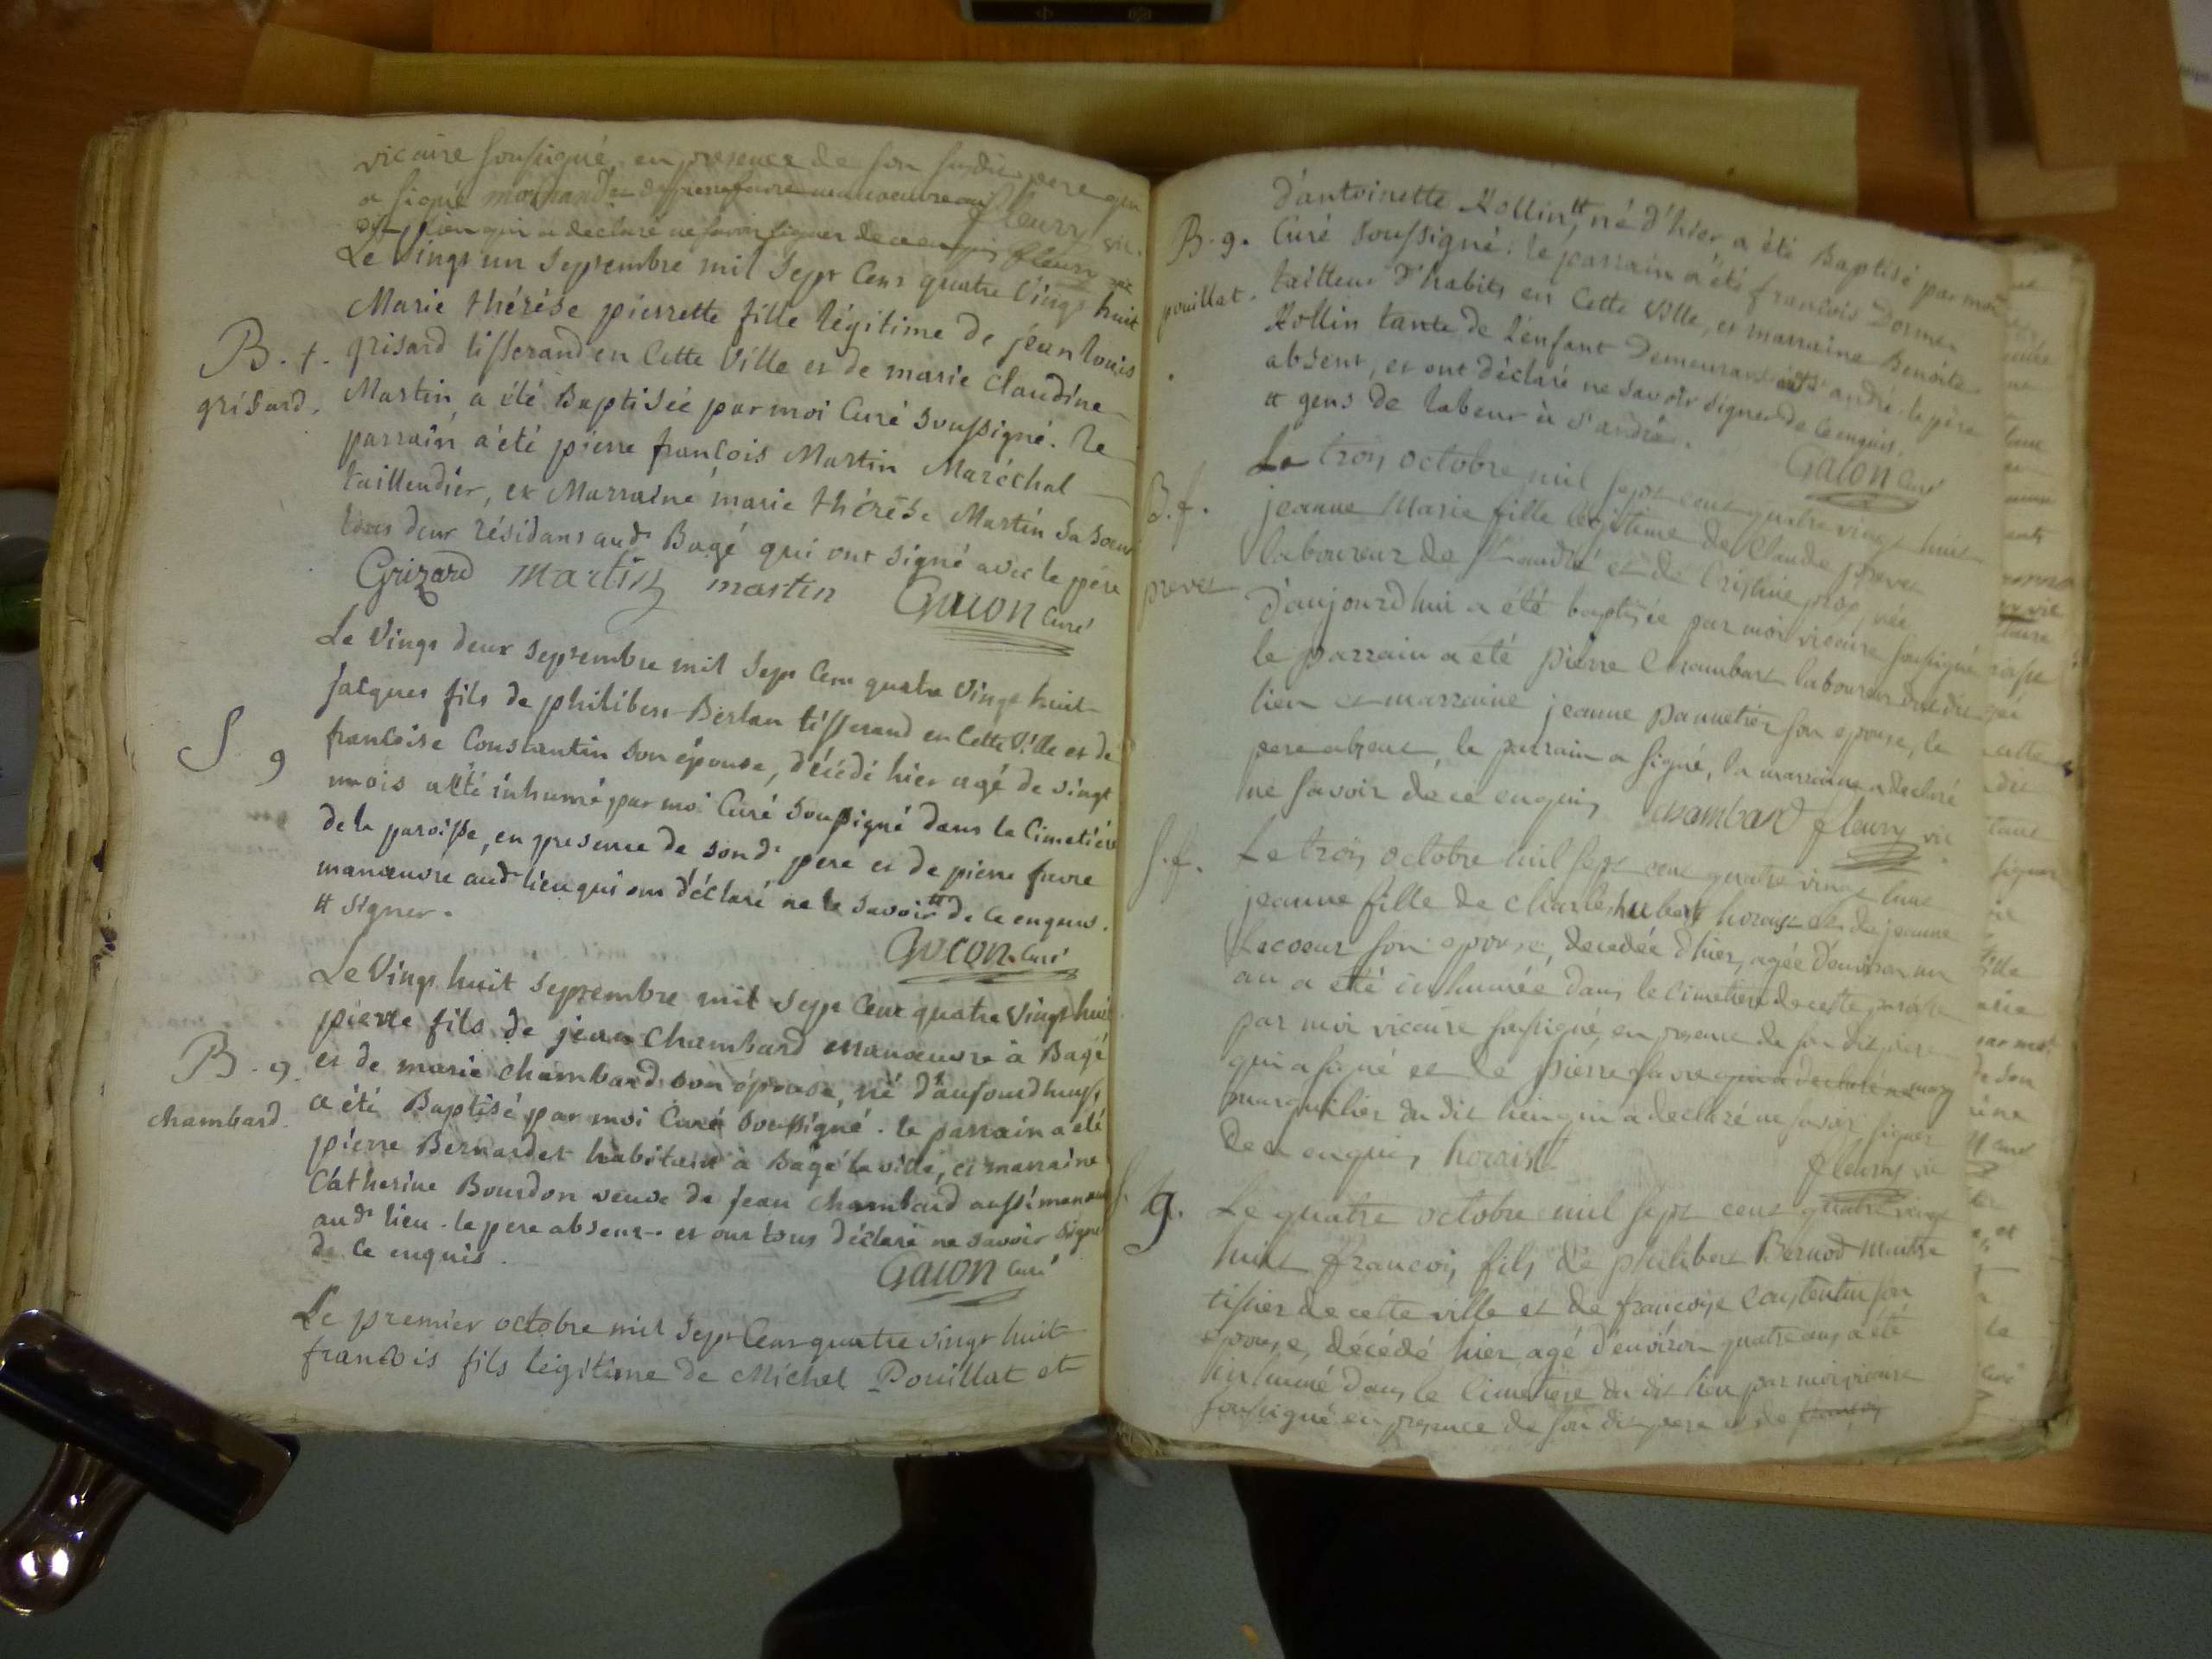 vicaire soussigné, en presence de son susdit pere qui
a signé moinard et de pierre favre manoeuvre au fleury vic.
dit lieu qui a declaré ne savoir signer de ce enquis fleury vic
Le vingt un septembre mil sept cent quatre vingt huit
Marie thérése pierrette fille légitime de jean louis
B. f. grisard tisserand en cette ville et de marie claudine
grisard. Martin, a été Baptisée par moi Curé soussigné. le
parrain a été pierre francois Martin Maréchal
taillendier, et Marraine marie thérése Martin sa soeur
tous deux résidans aud.t Bagé qui ont signé avec le pére
Grizard martin martin Gacon Curé
Le Vingt deux septembre mil sept cent quatre vingt huit
jacques fils de philibert Berlan tisserand en cette ville et de
S g francoise Constantin son épouse, décédé hier agé de vingt
mois a été inhumé par moi Curé soussigné dans le Cimetiére
de la paroisse, en presence de sond.t pere et de pierre favre
manœuvre aud.t lieu qui ont déclaré ne le savoir # de ce enquis.
# signer.
Gacon Curé
Le Vingt huit septembre mil sept cent quatre vingt huit
pierre fils de jean Chambard manœuvre à Bagé
B. g. et de marie chambard son épouse, né d'aujourd'huy,
chambard. a été Baptisé par moi Curé soussigné. le parrain a été
pierre Bernardet habitant à Bagé la ville, et marraine
Catherine Bourdon veuve de jean chambard aussi manœu
aud.t lieu. le pere absent. et ont tous déclaré ne savoir signer
de ce enquis.
Gacon Curé
Le premier octobre mil sept cent quatre vingt huit
francois fils légitime de Michel Pouillat et
d'antoinette Rollin #, né d'hier a été Baptisé par moi
B. g. Curé soussigné. le parrain a été francois Dormen
pouillat. tailleur d'habits en cette ville, et marraine Benoite
Rollin tante de l'enfant demeurant à st andré. le père
absent, et ont déclaré ne savoir signer de ce enquis.
# gens de labeur à st andré.
Gacon Curé
Le trois octobre mil sept cent quatre vingt huit
B. f. jeanne Marie fille legitime de Claude prevet
laboureur de st andré et de Cristine prop, née
prevet d'aujourd'hui a été baptisée par moi vicaire soussigné
le parrain a été pierre Chambart laboureur dudit
lieu et marraine jeanne pannetier son epouse, le
pere absent, le parrain a signé, la marraine a declaré
ne savoir de ce enquis chambard fleury vic.
S. f. Le trois octobre mil sept cent quatre vingt huit
jeanne fille de charle hubert horaist et de jeanne
Lecoeur son epouse, decedée d'hier, agée d'environ un
an a été inhumée dans le cimetiere de cette paroisse
par moi vicaire soussigné, en presence de son dit pere
qui a signé et de pierre favre qui a declaré ne savoir
marguilier du dit lieu qui a declaré ne savoir signer
de ce enquis horaist
fleury vic
S. g. Le quatre octobre mil sept cent quatre vingt
huit francois fils de philibert Bernod maitre
tissier de cette ville et de francoise constentin son
epouse, décédé hier, agé d'environ quatre ans a été
inhumé dans le cimetiere du dit lieu par moi vicaire
soussigné en presence de son dit pere et de